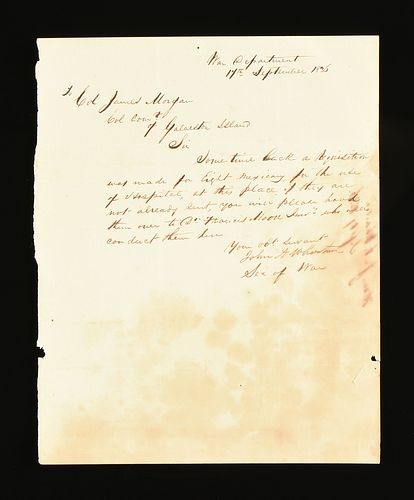 War Department
17th September 1836
To Col James Morgan
Col Comdg
of Galveston Island
Sir
Some time back a Requisition
was made for Eight Mexicans for the use
of Hospital, at this place if they are
not already sent you will please hand
them over to Dr Francis Moore Junr who will
conduct them here
Your obt servant
John A Wharton
Sec of War